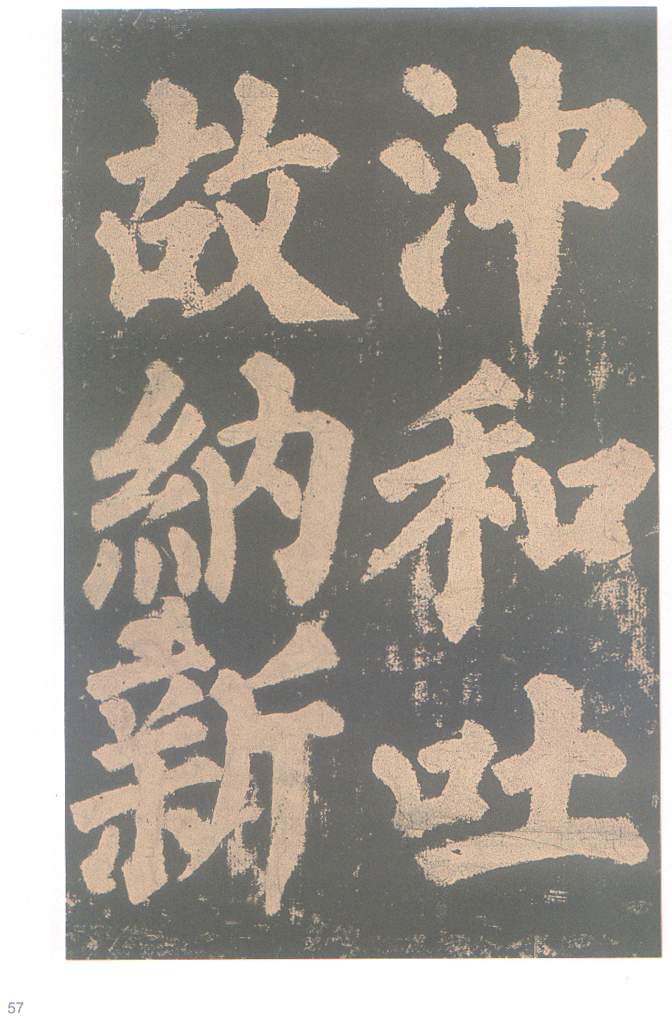 沖和吐
故納新
57